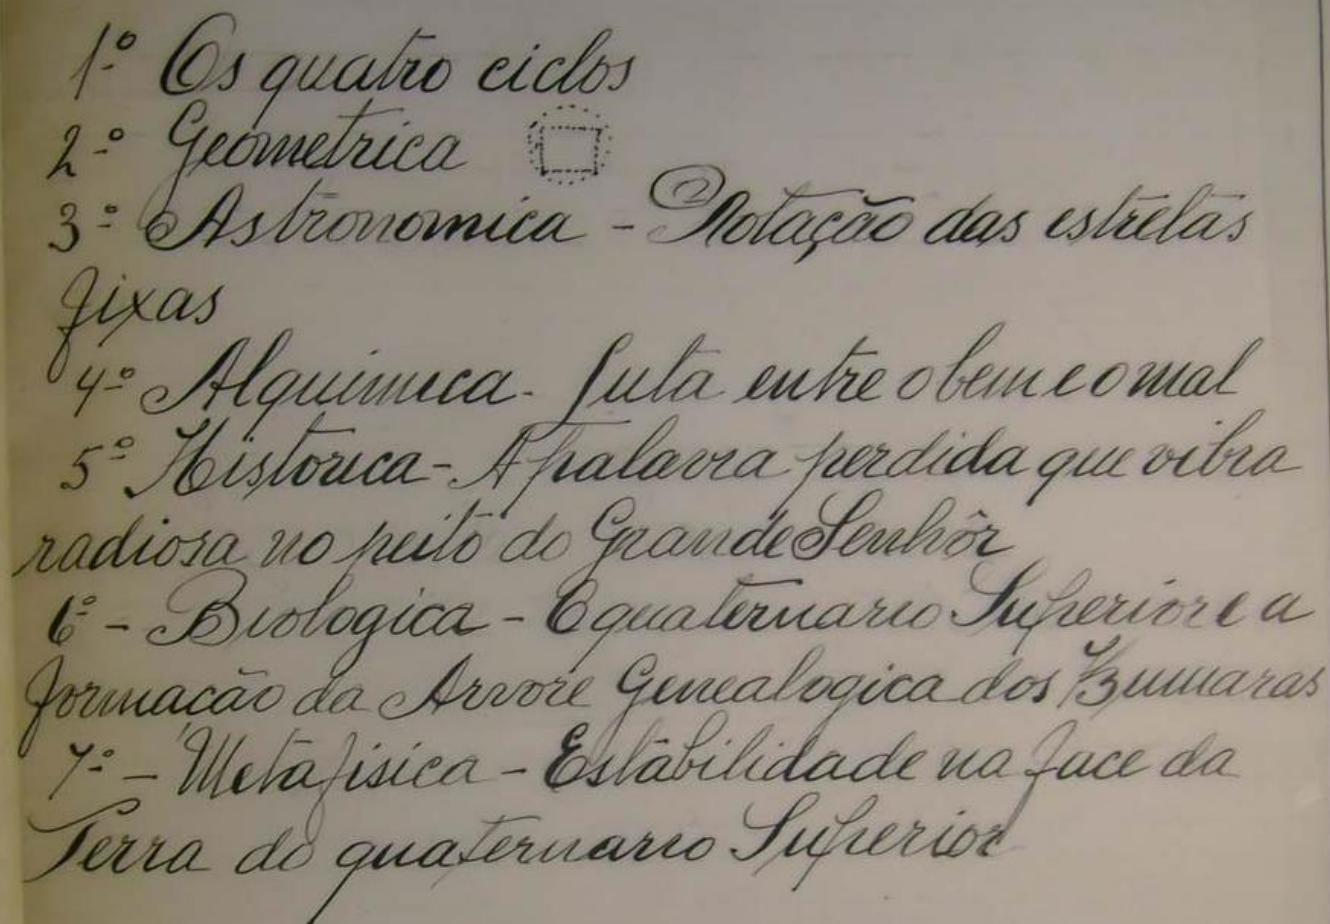 1º Os quatro ciclos
2º Geometrica
3º Astronomica - Rotação das estrelas
fixas
4º Alquimica - Luta entre o bem e o mal
5º Historica - A palavra perdida que vibra
radiosa no peito do Grande Senhôr
6º - Biologica - O quaternario Superior e a
formacão da Arvore Genealogica dos Kumaras
7º - Metafisica - Estabilidade na face da
Terra do quaternario Superior